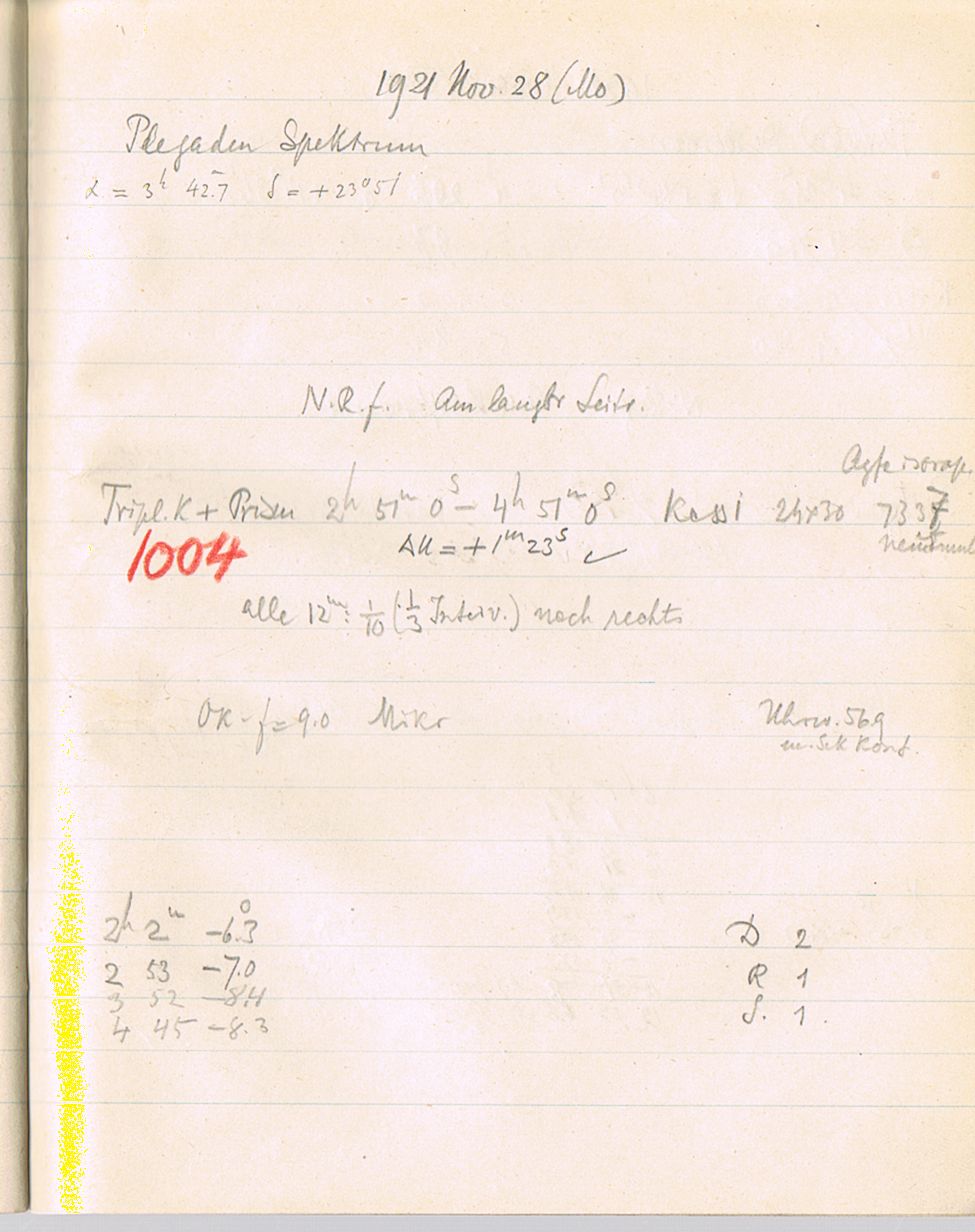 1921 Nov. 28 (Mo)
Plejaden Spektrum
α = 3h 42.m7 δ = +23°51'
N.R.f. Am langbr Seitr.
Agfa isorap.
Tripl. K + Prism 2h 51m 0s – 4h 51m 0s Kass I 24x30 7337
1004 ΔU = +1m 23s ✓
alle 12m: 1/10 (1/3 Interv.) nach rechts
Ok - f = 9.0 Mikr Uhrw. 569
m. Sek Kont.
2h 2m -6.°3 D 2
2 53 -7.0 R 1
3 52 -8.4
4 45 -8.3 S. 1.